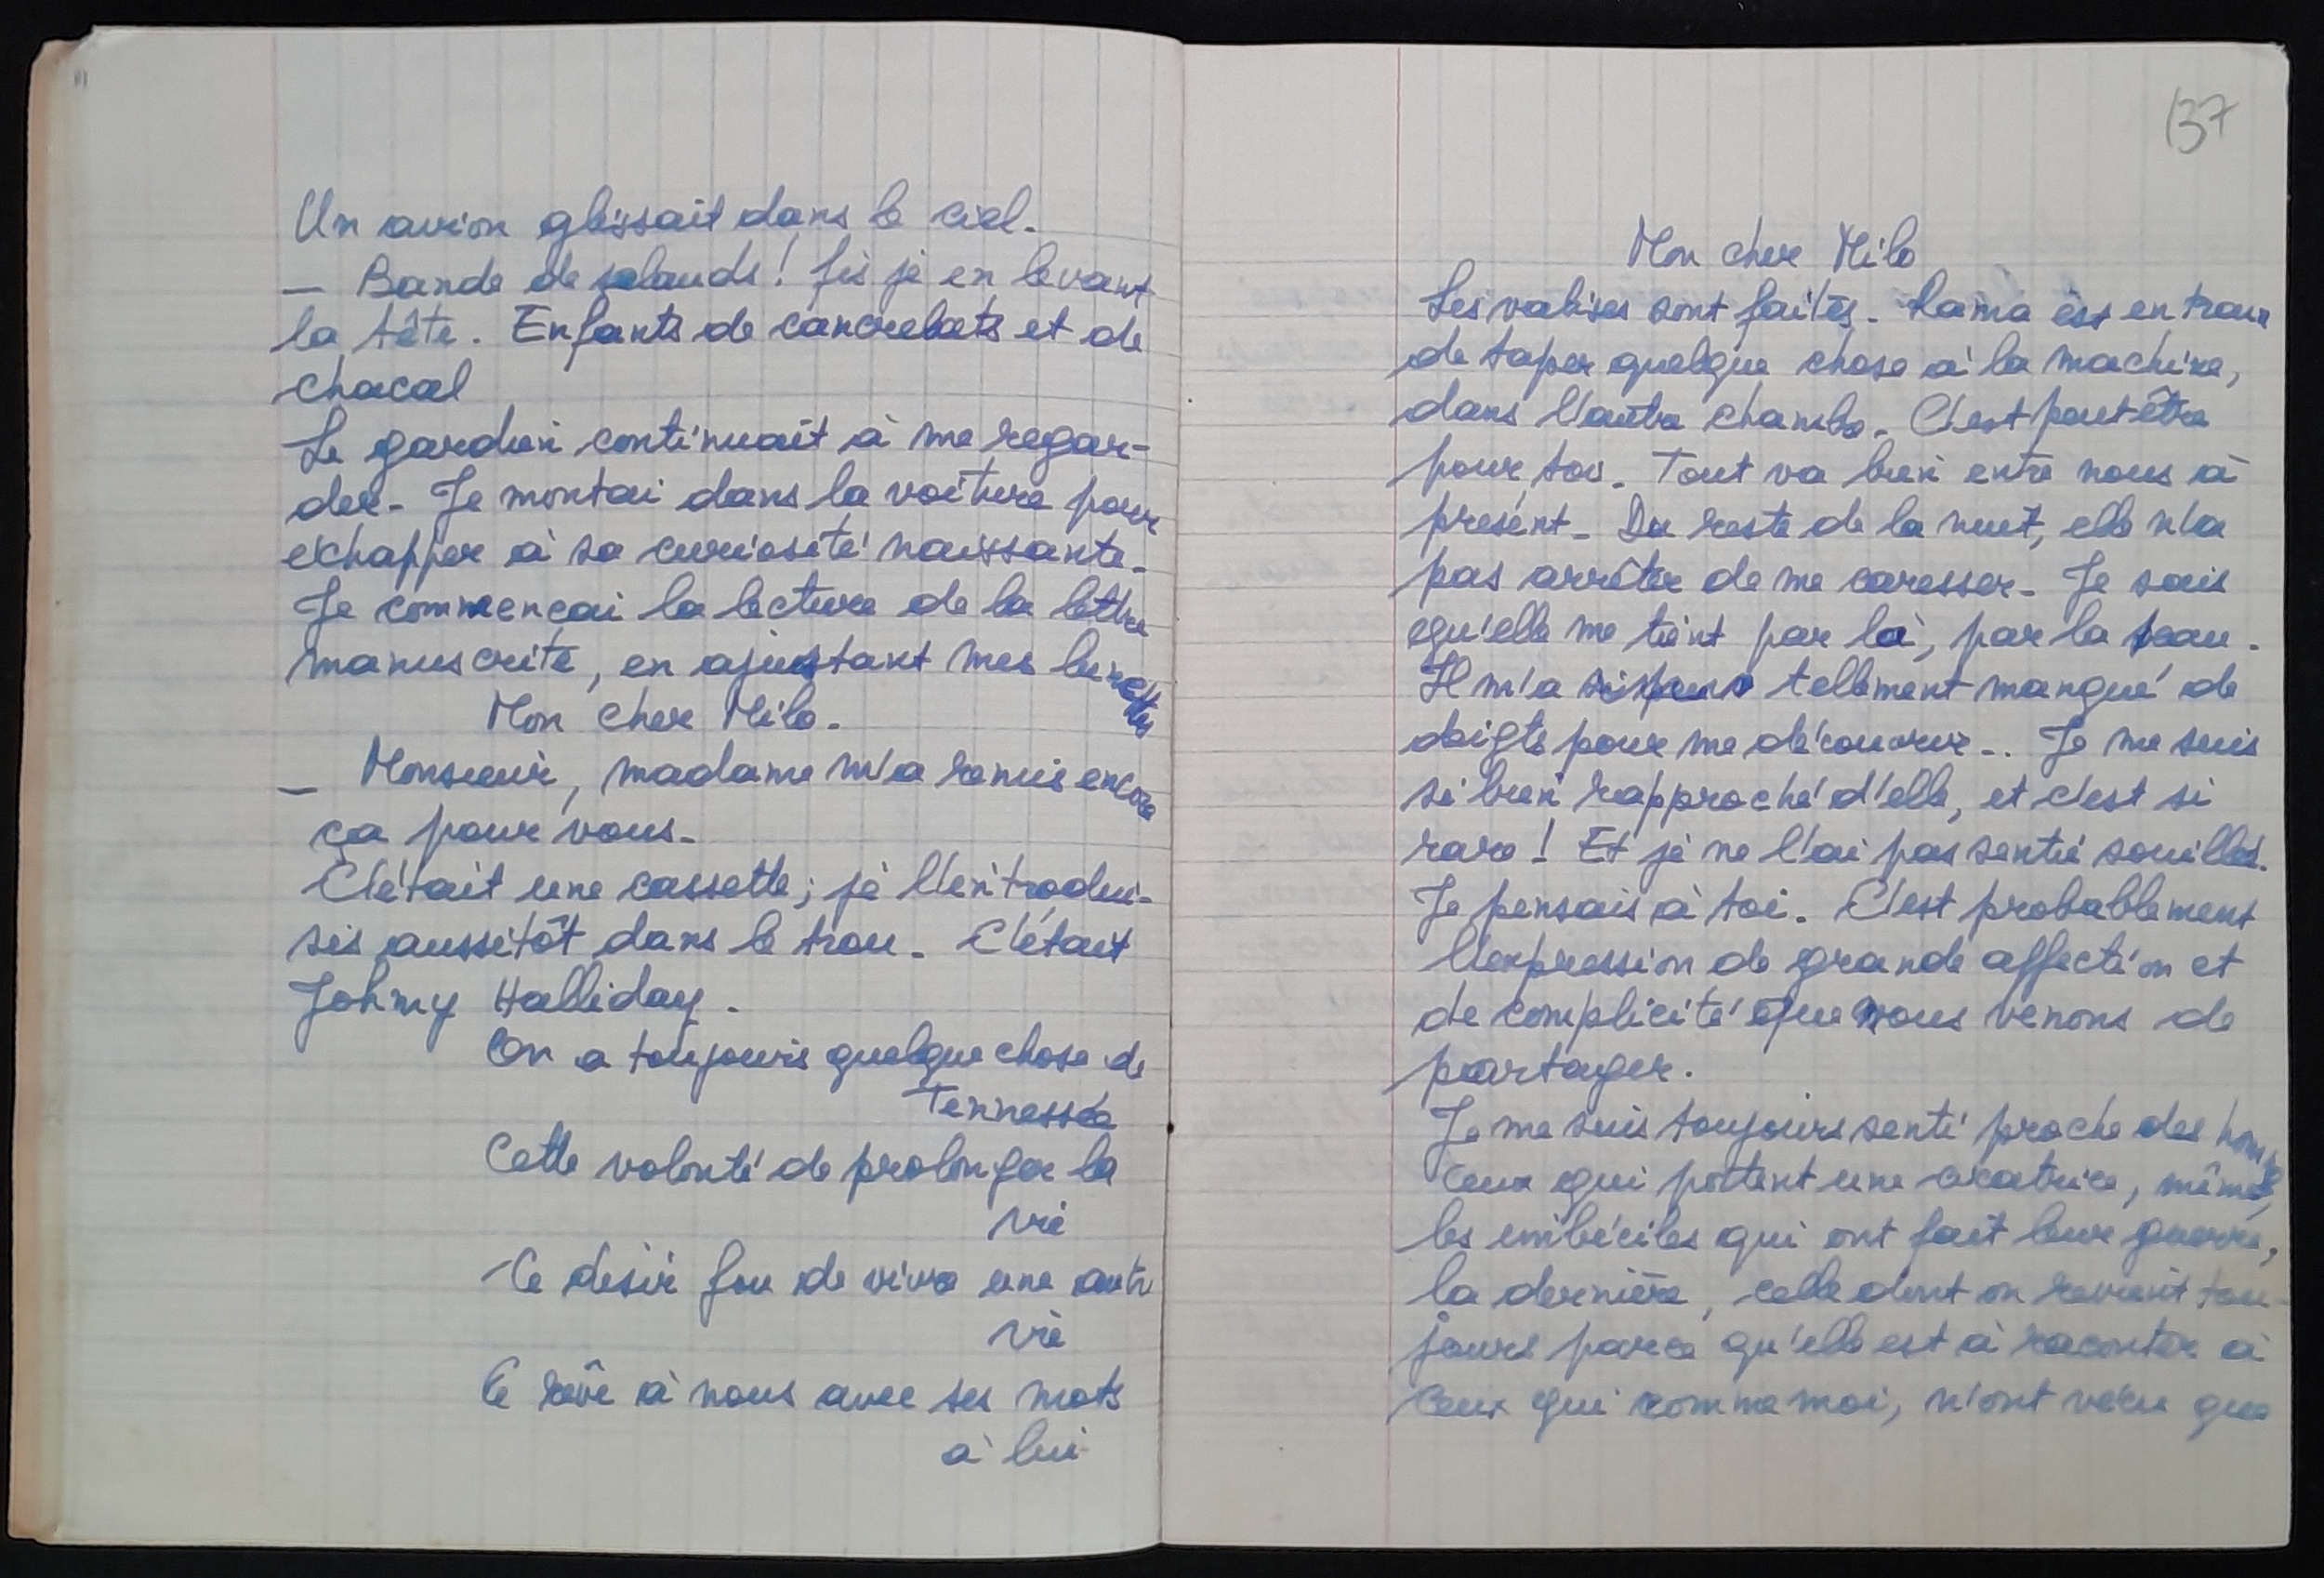 Un avion glissait dans le ciel.
— Bande de salauds ! fis je en levant
la tête. Enfants de cancrelats et de
chacal
Le gardien continuait à me regar-
der. Je montai dans la voiture pour
échapper à sa curiosité naissante.
Je commençai la lecture de la lettre
manuscrite, en ajustant mes lunettes
Mon cher Milo.
— Monsieur, madame m'a remis encore
ça pour vous.
C'était une cassette ; je l'introdui-
sis aussitôt dans le trou. C'était
Johnny Halliday.
On a toujours quelque chose de
Tennessee
Cette volonté de prolonger la
vie
Ce désir fou de vivre une autre
vie
Ce rêve à nous avec ses mots
à lui
137
Mon cher Milo
Les valises sont faites. Rama est en train
de taper quelque chose à la machine,
dans l'autre chambre. C'est peut être
pour toi. Tout va bien entre nous à
présent. Du reste de la nuit, elle n'a
pas arrêter de me caresser. Je sais
qu'elle me tient par là, par la peau.
Il m'a tellement manqué de
doigts pour me découvrir... Je me suis
si bien rapproché d'elle, et c'est si
rare ! Et je ne l'ai pas sentie souillée.
Je pensais à toi. C'est probablement
l'expression de grande affection et
de complicité que nous venons de
partager.
Je me suis toujours senti proche des hommes,
ceux qui portent une cicatrice, même
les imbéciles qui ont fait leur guerre,
la dernière, celle dont on revient tou-
jours parce qu'elle est à raconter à
ceux qui comme moi, n'ont vécu que